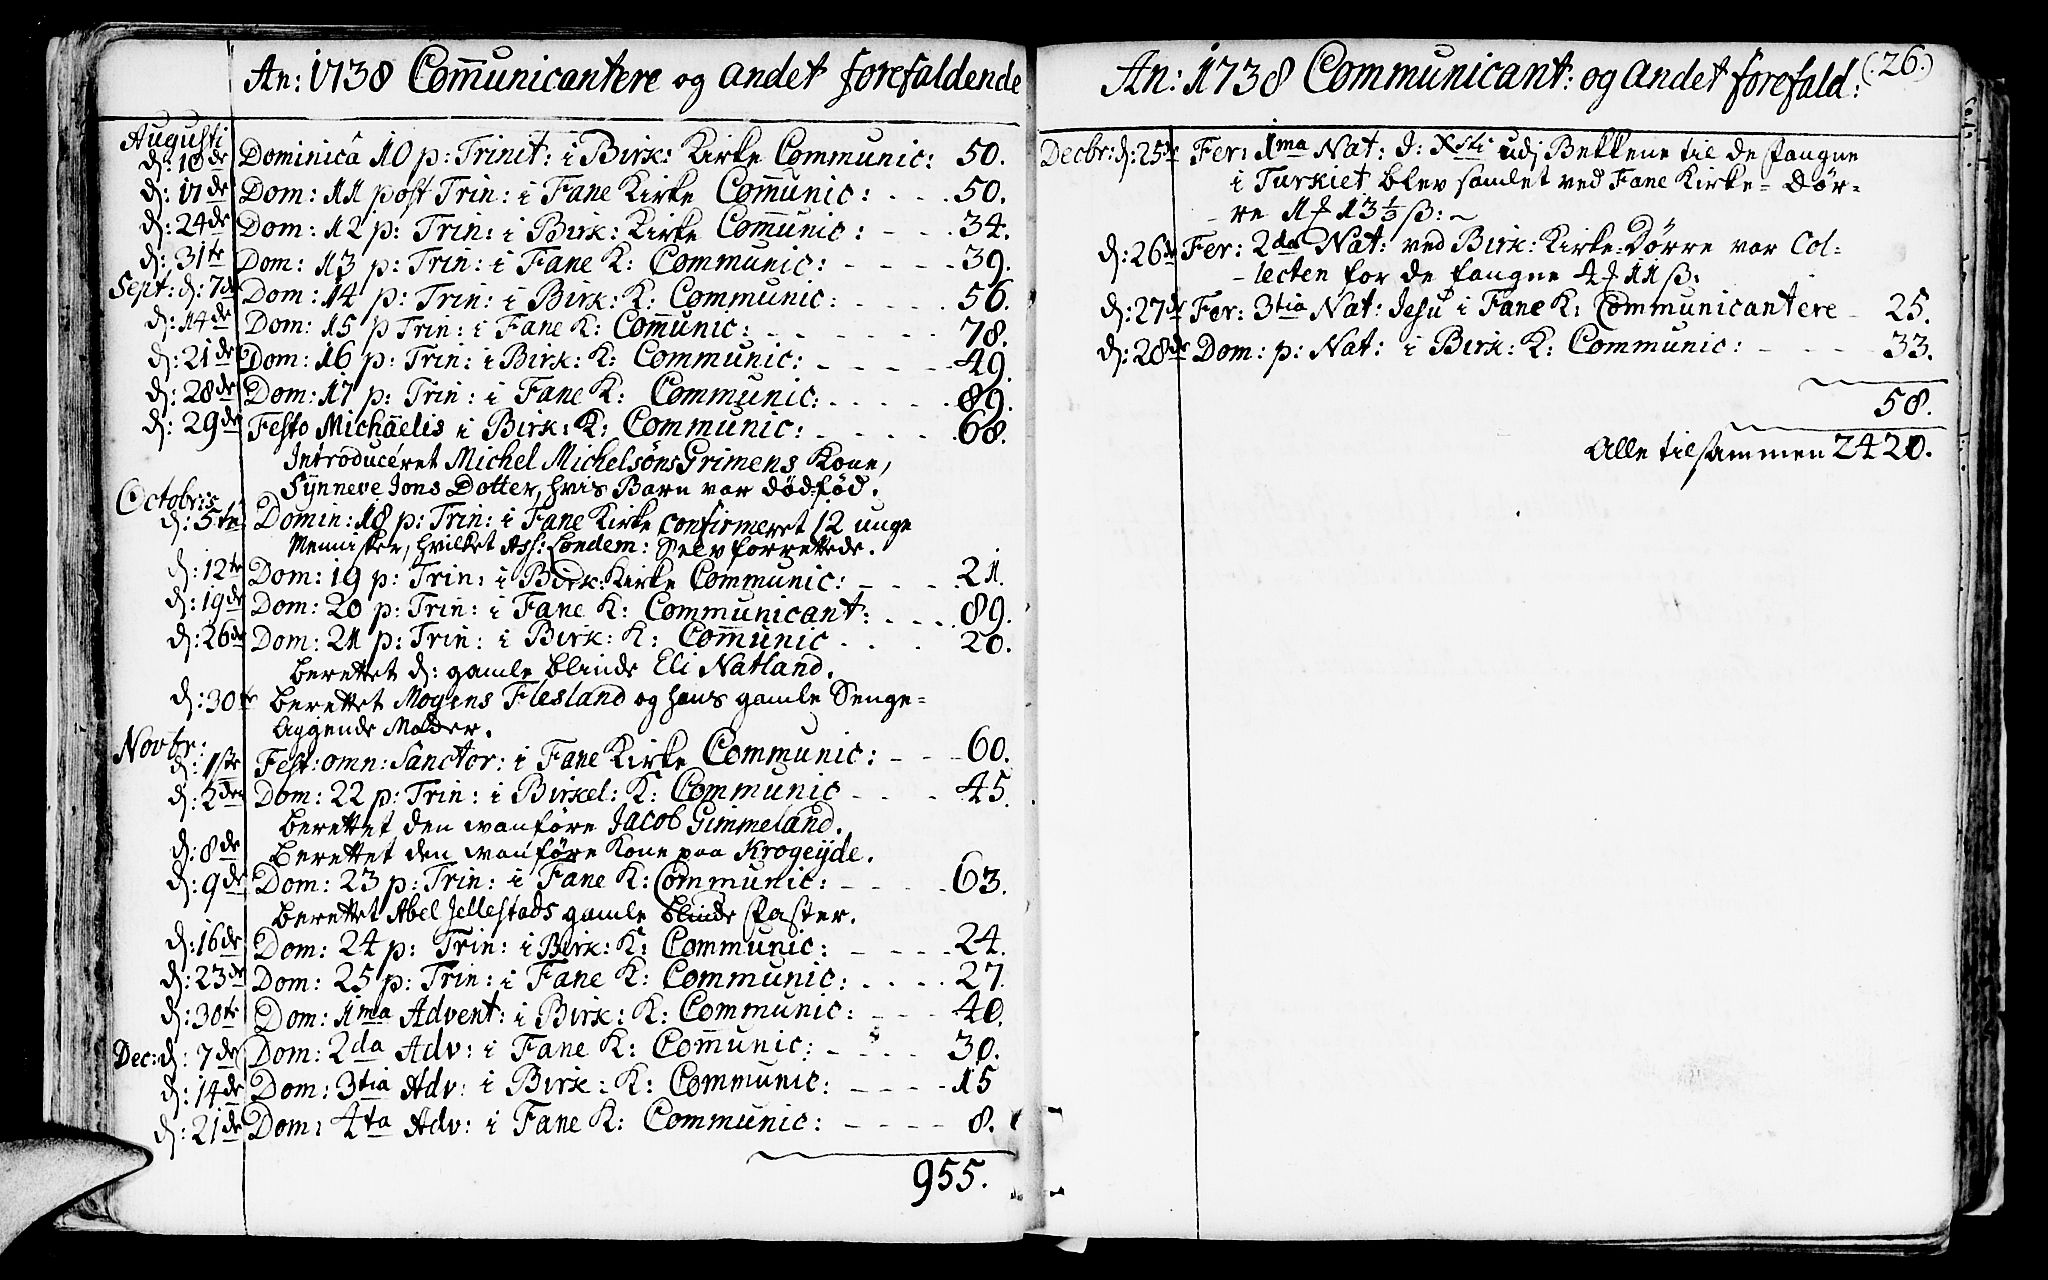 An: 1738 Com̅unicantere og andet forefaldende
Augusti
d: 10de Dominica 10 p: Trinit: i Birk: Kirke Communic: 50.
d: 17de Dom: 11 post Trin: i Fane Kirke Com̅unic: 50.
d: 24de Dom: 12 p: Trin: i Birk: Kirke Com̅unic: 34.
d: 31te Dom: 13 p: Trin: i Fane K: Communic: 39.
Sept: d: 7de Dom: 14 p: Trin: i Birk: K: Communic: 56.
d: 14de Dom: 15 p Trin: i Fane K: Com̅unic: 78.
d: 21de Dom: 16 p: Trin: i Birk: K: Communic: 49.
d: 28de Dom: 17 p: Trin: i Fane K: Communic: 89.
d: 29de Festo Michäelis i Birk: K: Communic: 68.
Introduceret Michel Michelsøns Grimens Kone,
Synneve Jons Dotter, hvis Barn var dødfød.
Octobris
d: 5te Domin: 18 p: Trin: i Fane Kirke confirmeret 12 unge
Mennisker, hvilket Ass: Londem: Selv forrettede.
d: 12te Dom: 19 p: Trin: i Birk: Kirke Communic: 21.
d: 19de Dom: 20 p: Trin: i Fane K: Communicant: 89.
d: 26de Dom: 21 p: Trin: i Birk: K: Com̅unic 20.
berettet d: gamle blinde Eli Natland.
d: 30te berettet Mogens Flesland og hans gamle Senge=
liggende Moder.
Novbr:
d: 1ste Fest: omn: Sanctor: i Fane Kirke Communic: 60.
d: 2den Dom: 22 p: Trin: i Birkel: K: Communic 45.
berettet den vanføre Jacob Gimmeland.
d: 8de berettet den vanføre Kone paa Krogeyde.
d: 9de Dom: 23 p: Trin: i Fane K: Communic: 63.
berettet Abel Jellestads gamle blinde Faster.
d: 16de Dom: 24 p: Trin: i Birk: K: Communic: 24.
d: 23de Dom: 25 p: Trin: i Fane K: Communic: 27.
d: 30te Dom: 1ma Advent: i Birk: K: Communic: 40.
Dec: d: 7de Dom: 2da Adv: i Fane K: Com̅unic: 30.
d: 14de Dom: 3tia Adv: i Birk: K: Communic: 15
d: 21de Dom: 4ta Adv: i Fane K: Communic: 8.
955.
An: 1738 Communicant: og andet forefald: (26.)
Decbr: d: 25de Fer: 1ma Nat: J: Xsti udj Bekkene til de fangne
i Turkiet blev samlet ved Fane Kirke= Dør=
re 1 13 ½ ß:
d: 26de Fer: 2da Nat: ved Birk: Kirke=Dørre var Col=
lecten for de fangne 4 11 ß:
d: 27de Fer: 3tia Nat: Jesu i Fane K: Communicantere 25.
d: 28de Dom: p: Nat: i Birk: K: Communic: 33.
58.
Alle tilsammen 2420.